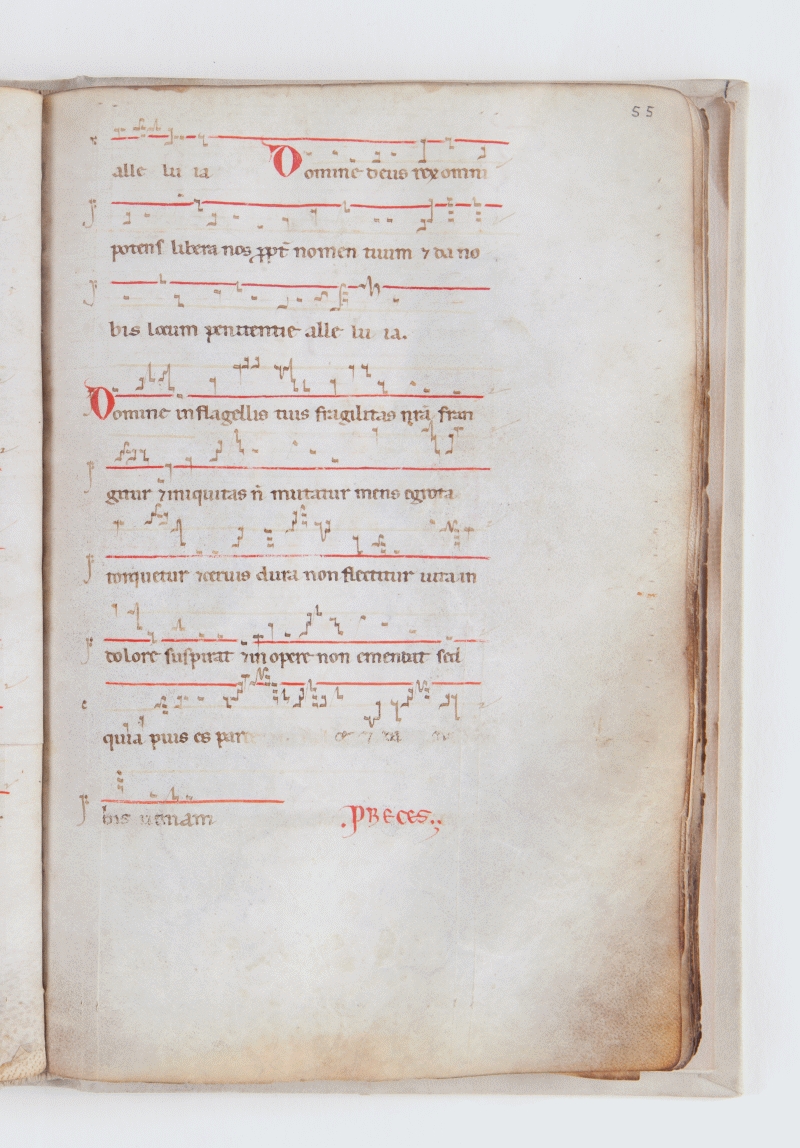 55
alle lu ia Domine deus rex omni
potens libera nos ꝓpt̄ nomen tuum ⁊ da no
bis locum penitentie alle lu ia.
Domine in flagellis tuis fragilitas nr̄a fran
gitur ⁊ iniquitas n̄ mutatur mens egrota
torquetur ⁊ ceruis dura non flectitur uita in
dolore suspirat ⁊ in opere non emendat sed
quia pius es parce
bis ueniam
.PRECES.